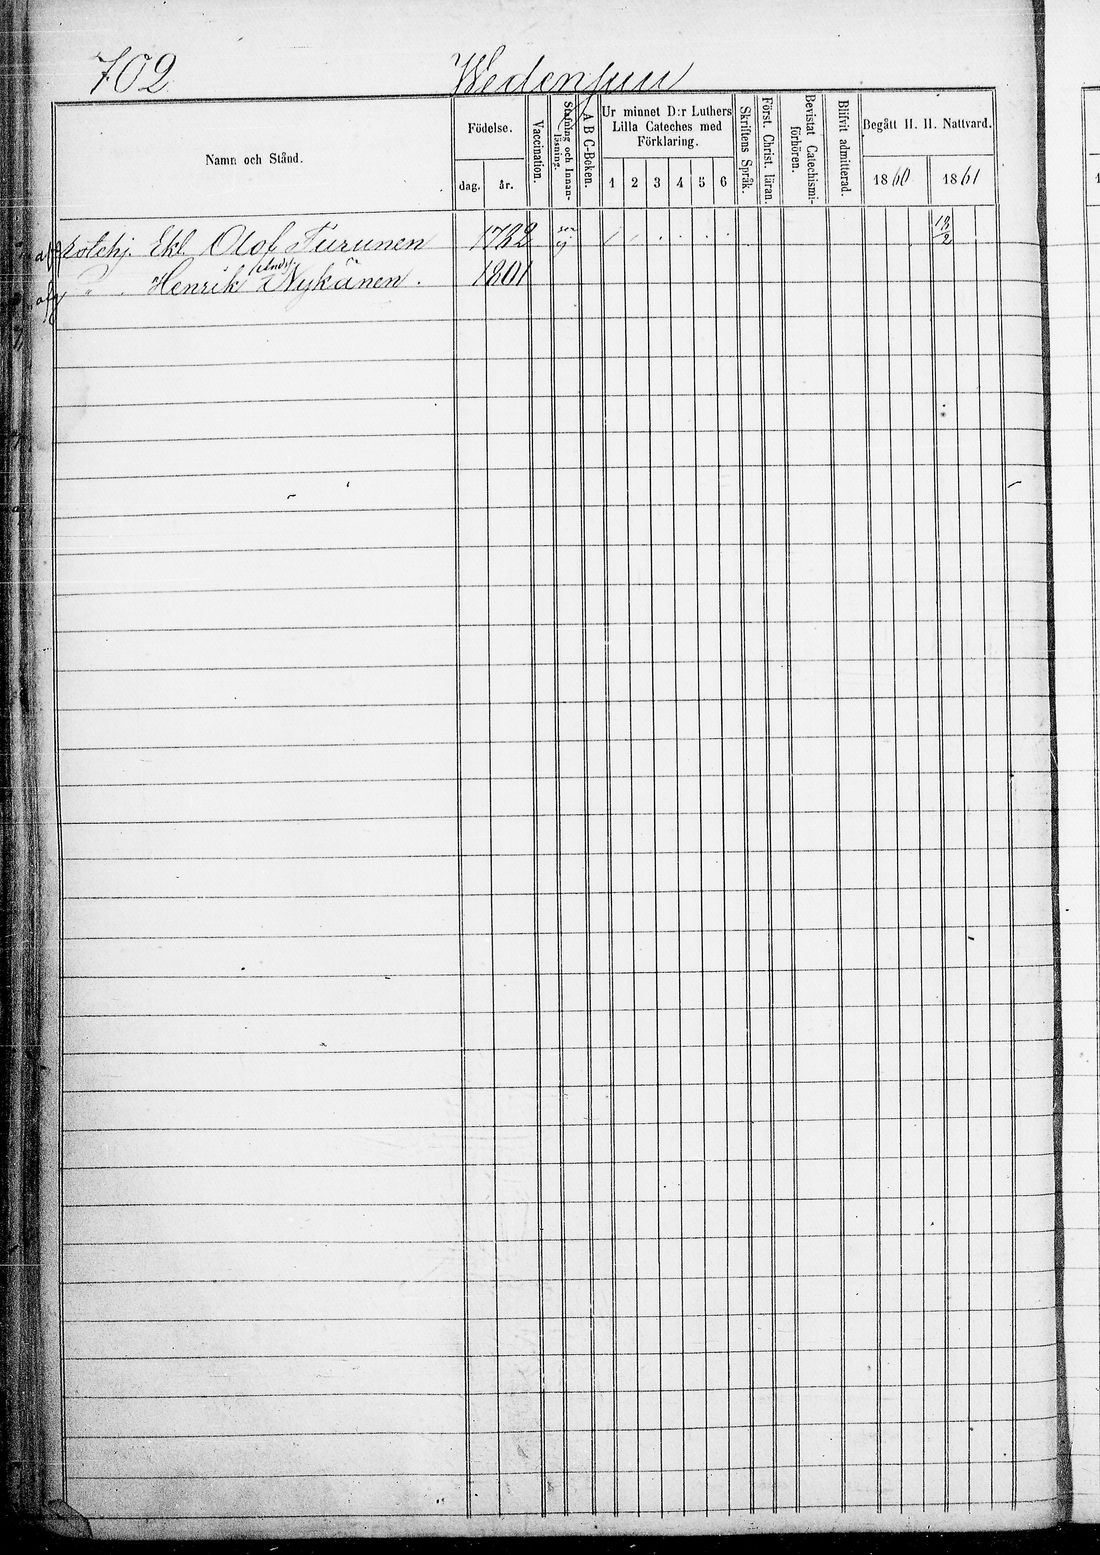 702 Wedensuu
Namn och Stånd.
Födelse.
dag. år.
Vaccination.
Stafning och Innan-
läsning.
A B C-Boken.
Ur minnet D:r Luthers
Lilla Cateches med
Förklaring.
1 2 3 4 5 6
Skriftens Språk.
Först. Christ. läran.
Bevistat Catechismi-
förhören.
Blifvit admitterad.
Begått H. H. Nattvard.
1860 1861
Ekl. Olof Turunen 1782 13/2
" Henrik Andsf Nykänen. 1801